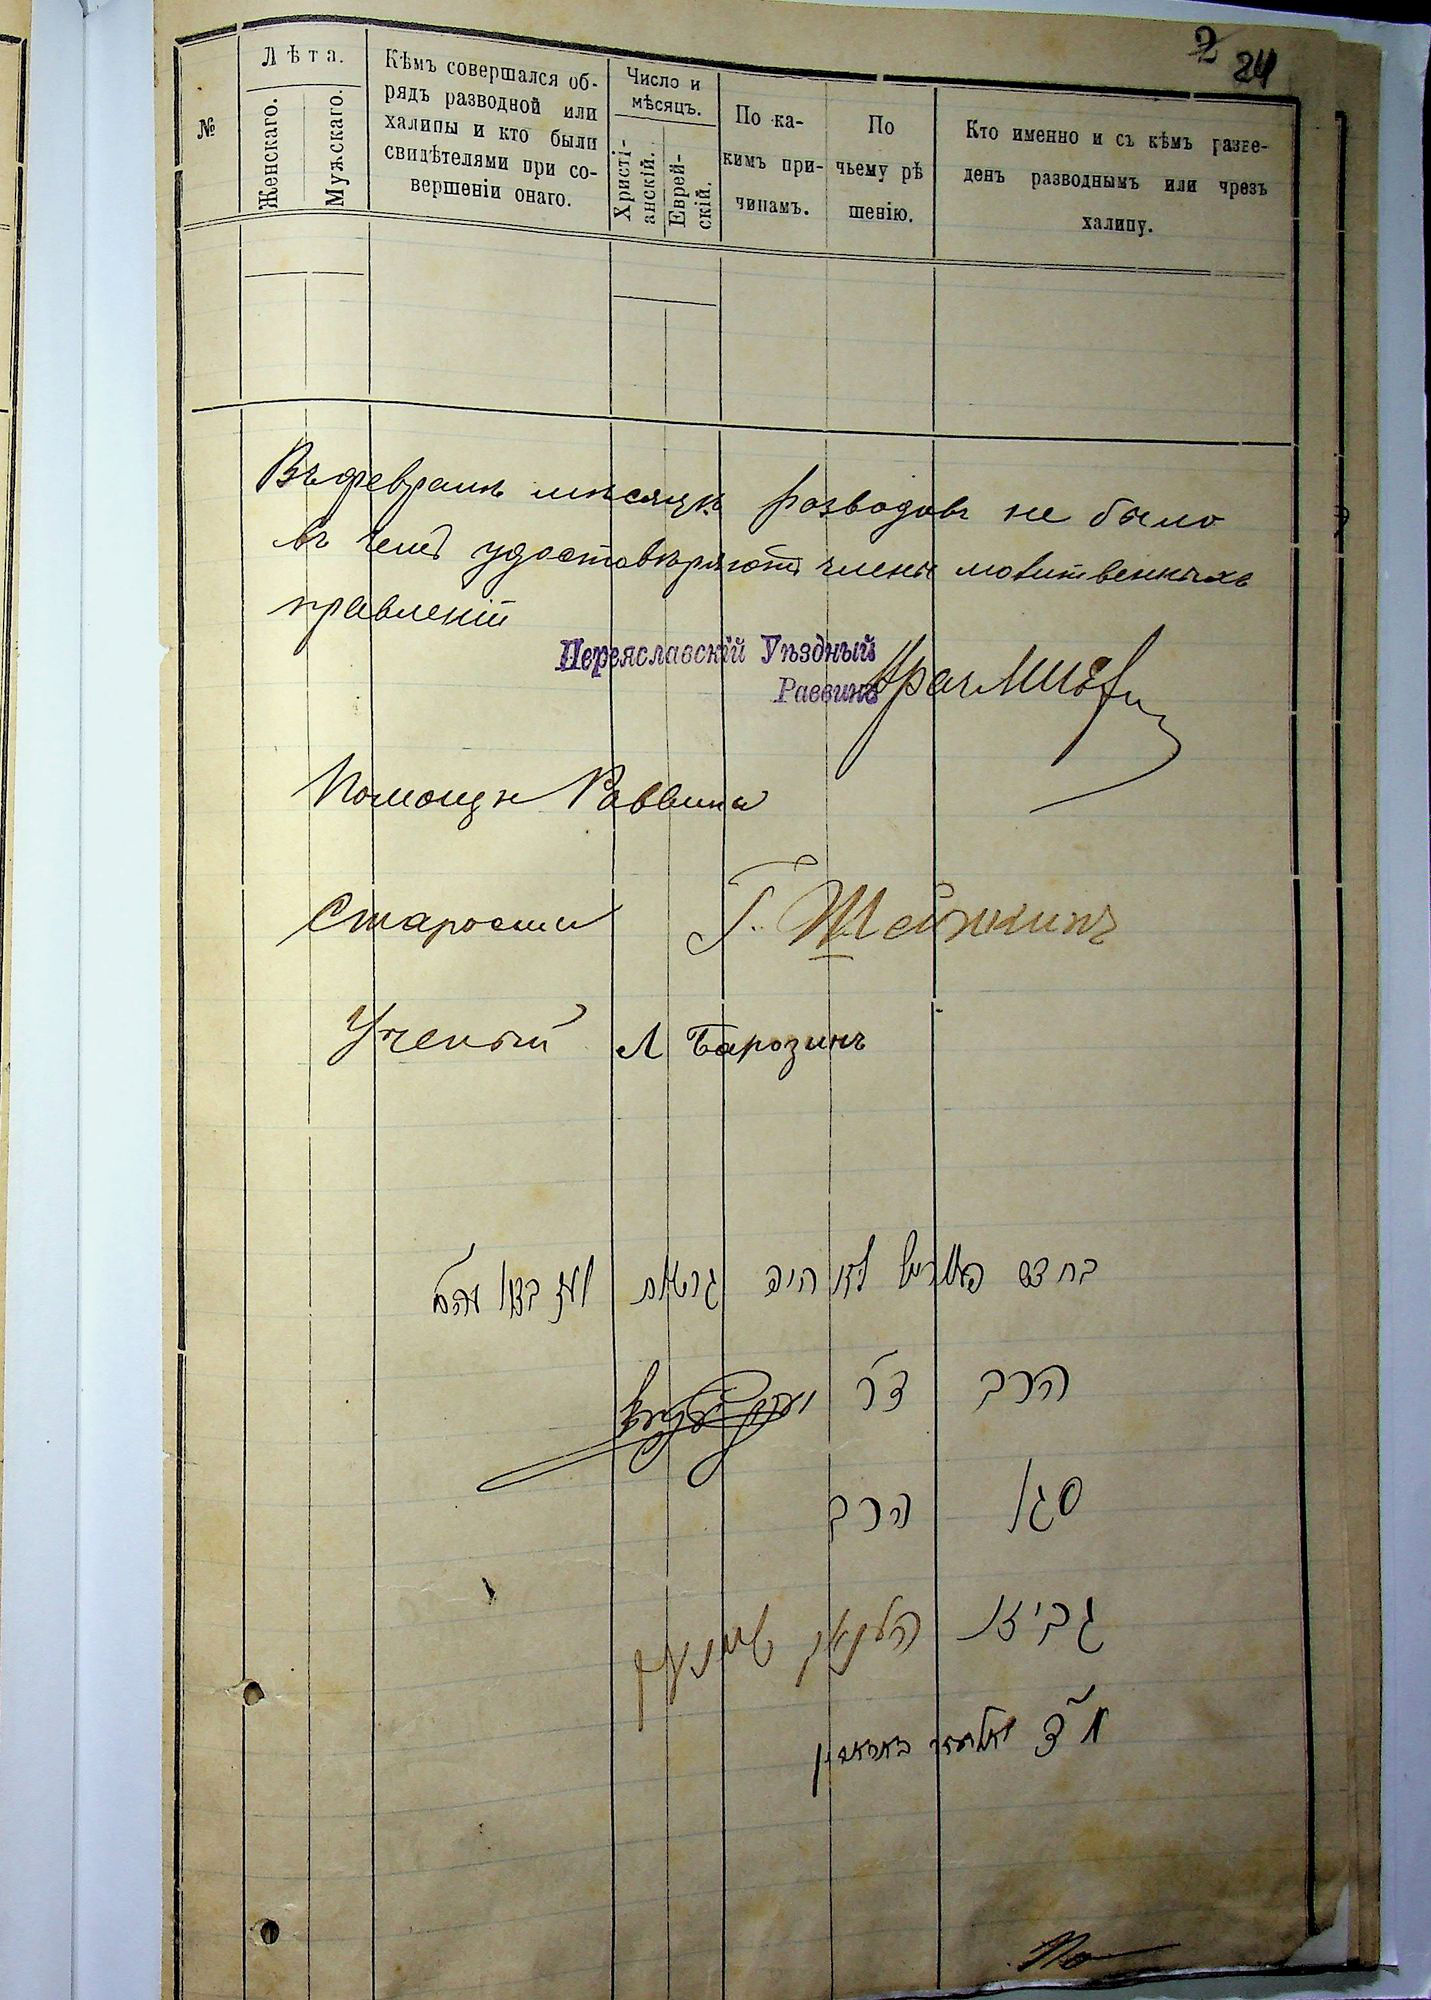 2 24
№
Лѣта.
Женскаго.
Мужскаго.
Кѣмъ совершался об-
рядъ разводной или
халипы и кто были
свидѣтелями при со-
вершеніи онаго.
Число и
мѣсяцъ.
Христі-
анскій.
Еврей-
скій.
По ка-
кимъ при-
чинамъ.
По
чьему рѣ
шенію.
Кто именно и съ кѣмъ разве-
денъ разводнымъ или чрезъ
халипу.
Въ февралѣ мѣсяцѣ разводовъ не было
въ чемъ удостовѣряютъ члены молитвенныхъ
правленій
Переяславскій Уѣздный
Раввинъ
Помощн Раввина
Староста Г. Шейнкинъ
Ученый Л Барозинъ
בחדש פעווראל לא היה גרושין
הרב ד״ר
סגן הרב
גבאי
מ״ץ
По